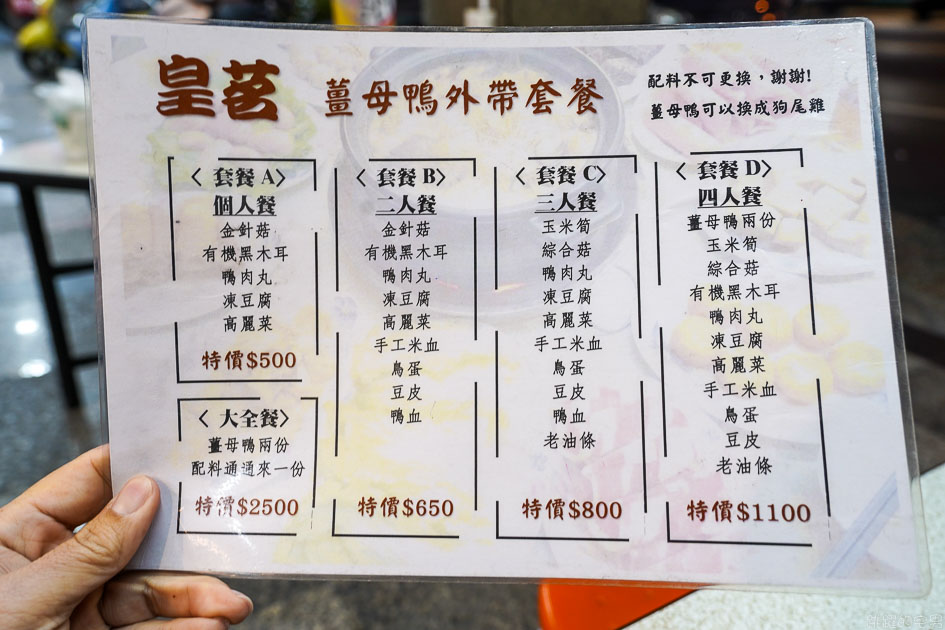 皇茗 薑母鴨外帶套餐
配料不可更換，謝謝!
薑母鴨可以換成狗尾雞
〈 套餐 A〉
個人餐
金針菇
有機黑木耳
鴨肉丸
凍豆腐
高麗菜
特價$500
〈 大全餐〉
薑母鴨兩份
配料通通來一份
特價$2500
〈 套餐 B〉
二人餐
金針菇
有機黑木耳
鴨肉丸
凍豆腐
高麗菜
手工米血
鳥蛋
豆皮
鴨血
特價$650
〈 套餐 C〉
三人餐
玉米筍
綜合菇
鴨肉丸
凍豆腐
高麗菜
手工米血
鳥蛋
豆皮
鴨血
老油條
特價$800
〈 套餐 D〉
四人餐
薑母鴨兩份
玉米筍
綜合菇
有機黑木耳
鴨肉丸
凍豆腐
高麗菜
手工米血
鳥蛋
豆皮
老油條
特價$1100